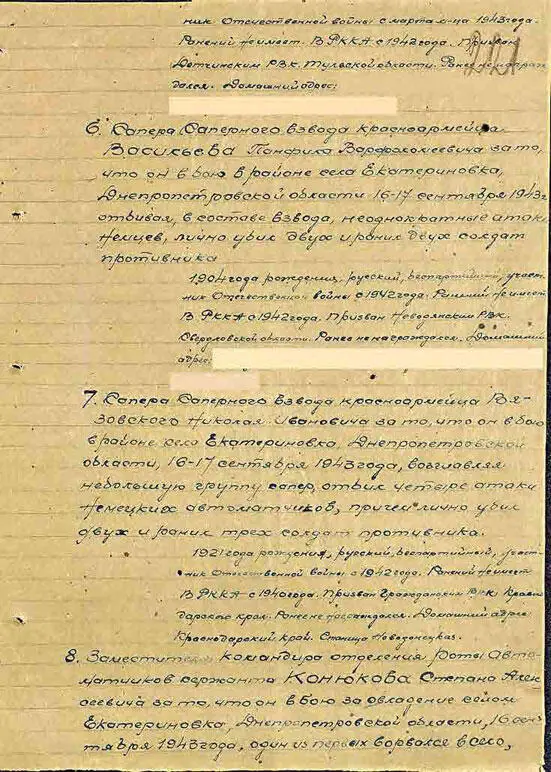 ник Отечественной войны с марта м-ца 1943 года.
Ранений не имеет. В РККА с 1942 года. Призван
Детчинским РВК, Тульской области. Ранее не награж-
дался. Домашний адрес:
6. Сапера Саперного взвода красноармейца
Васильева Панфила Варфоломеевича за то,
что он в бою в районе села Екатериновка,
Днепропетровской области 16-17 сентября 1943г
отбивая, в составе взвода, неоднократные атаки
немцев, лично убил двух и ранил двух солдат
противника
1904 года рождения, русский, беспартийный, участ-
ник Отечественной войны с 1942 года. Ранений не имеет
В РККА с 1942 года. Призван РВК.
Свердловской области. Ранее не награждался. Домашний
адрес.
7. Сапера Саперного взвода красноармейца Вя-
зовского Николая Ивановича за то, что он в бою
в районе села Екатериновка, Днепропетровской
области, 16-17 сентября 1943 года, возглавляя
небольшую группу сапер, отбил четыре атаки
немецких автоматчиков, причем лично убил
двух и ранил трех солдат противника.
1921 года рождения, русский, беспартийный, участ-
ник Отечественной войны с 1942 года. Ранений не имеет
В РККА с 1940 года. Призван Гражданским РВК Красно
дарского края. Ранее не награждался. Домашний адрес
Краснодарский край. Станица
8. Заместителя командира отделения Роты Авто-
матчиков сержанта Конюкова Степана Алек
сеевича за то, что он в бою за овладение селом
Екатериновка, Днепропетровской области, 16 сен-
тября 1943 года, один из первых ворвался в село,